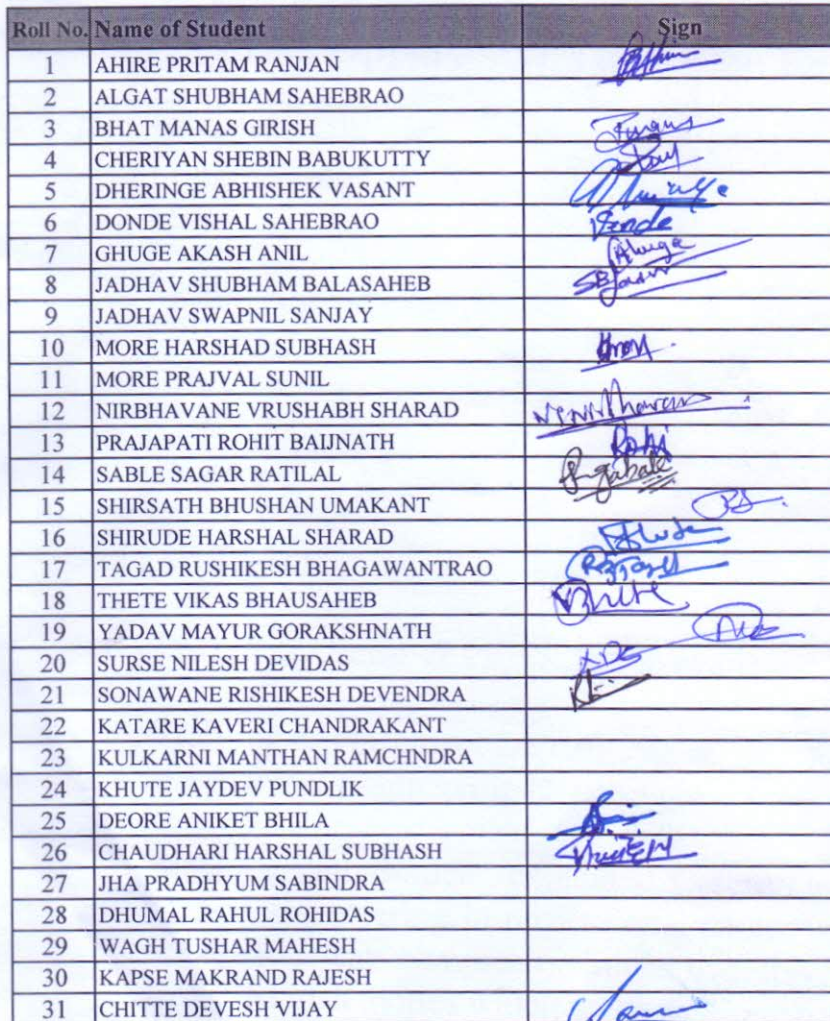 Roll No. Name of Student Sign
1 AHIRE PRITAM RANJAN
2 ALGAT SHUBHAM SAHEBRAO
3 BHAT MANAS GIRISH
4 CHERIYAN SHEBIN BABUKUTTY
5 DHERINGE ABHISHEK VASANT
6 DONDE VISHAL SAHEBRAO
7 GHUGE AKASH ANIL
8 JADHAV SHUBHAM BALASAHEB
9 JADHAV SWAPNIL SANJAY
10 MORE HARSHAD SUBHASH
11 MORE PRAJVAL SUNIL
12 NIRBHAVANE VRUSHABH SHARAD
13 PRAJAPATI ROHIT BAIJNATH
14 SABLE SAGAR RATILAL
15 SHIRSATH BHUSHAN UMAKANT
16 SHIRUDE HARSHAL SHARAD
17 TAGAD RUSHIKESH BHAGAWANTRAO
18 THETE VIKAS BHAUSAHEB
19 YADAV MAYUR GORAKSHNATH
20 SURSE NILESH DEVIDAS
21 SONAWANE RISHIKESH DEVENDRA
22 KATARE KAVERI CHANDRAKANT
23 KULKARNI MANTHAN RAMCHNDRA
24 KHUTE JAYDEV PUNDLIK
25 DEORE ANIKET BHILA
26 CHAUDHARI HARSHAL SUBHASH
27 JHA PRADHYUM SABINDRA
28 DHUMAL RAHUL ROHIDAS
29 WAGH TUSHAR MAHESH
30 KAPSE MAKRAND RAJESH
31 CHITTE DEVESH VIJAY